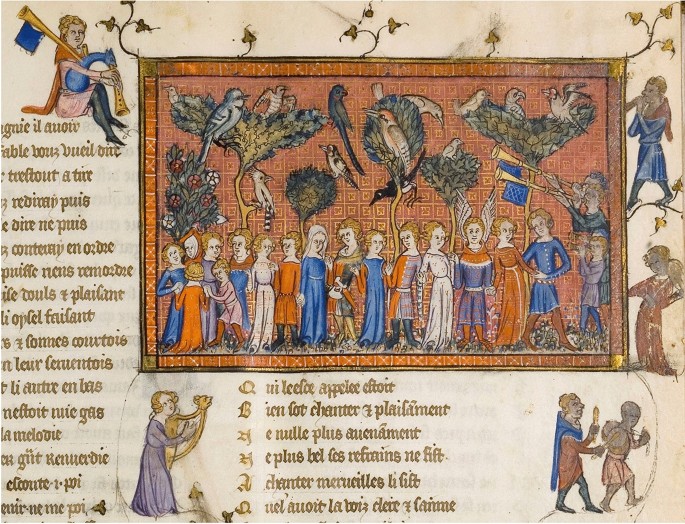 gnie il auoir
fable vouz vueil dire
r trestout a tire
z rediray puis
le dire ne puis
z conteray en ordre
puisse riens remordre
ise douls & plaisant
li oysel faisant
rs & sonnes courtois
n leur seruentois
t li autre en bas
nestoit mie gas
la melodie
er gñt renuerdie
esconte .i. poi
enir ne me poi
Qui leesce appelee estoit
Bien sot chanter & plaisãment
Ne nulle plus auenãment
Ne plus bel ses refrains ne fist
A chanter merueilles li sist
Quel auoit la voiz clere & sainne